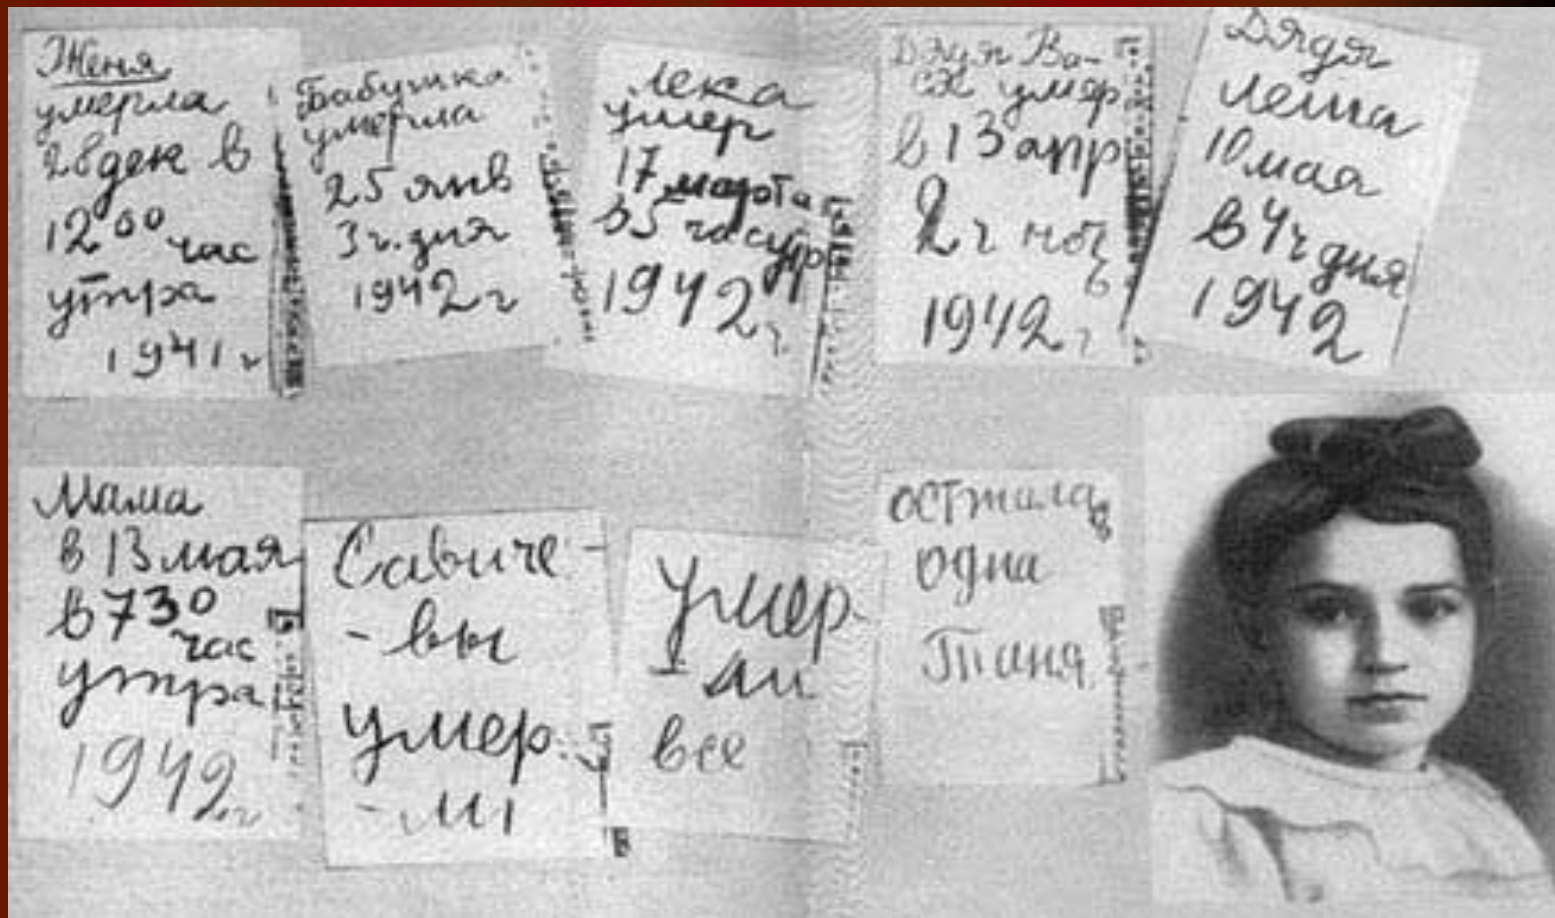 Женя
умерла
28 дек в
12⁰⁰ час
утра
1941 г
Бабушка
умерла
25 янв
3 ч. дня
1942 г
Лека
умер
17 марта
в 5 час утр
1942 г.
Дядя Ва-
ся умер
в 13 апр
2 ч ноч
ь
1942 г
Дядя
Леша
10 мая
в 4 ч дня
1942
Мама
в 13 мая
в 7 30
час
утра
1942 г
Савиче-
-вы
умер
-ли
умер-
-ли
все
осталась
одна
Таня